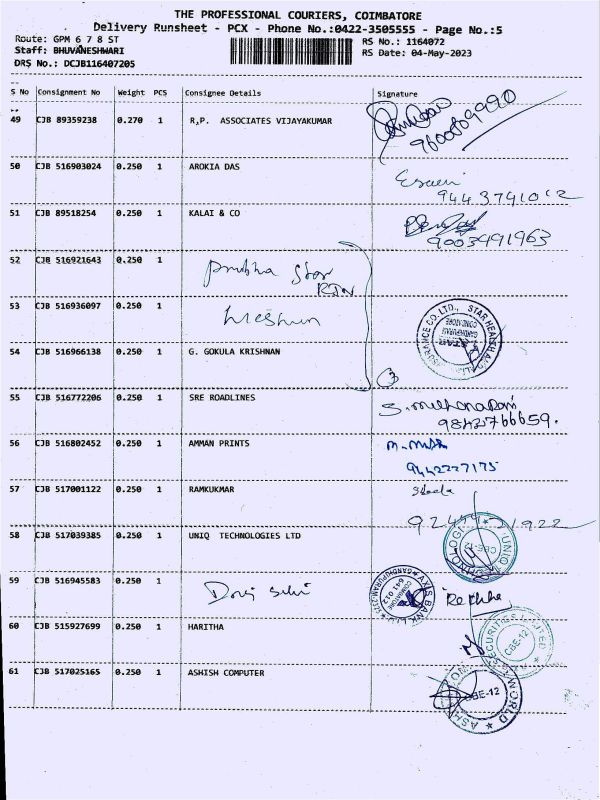 THE PROFESSIONAL COURIERS, COIMBATORE
Delivery Runsheet - PCX - Phone No.:0422-3505555 - Page No.:5
Route: GPM 6 7 8 ST
RS No.: 1164072
Staff: BHUVANESHWARI
RS Date: 04-May-2023
DRS No.: DCJB116407205
S No Consignment No Weight PCS Consignee Details Signature
49 CJB 89359238 0.270 1 R,P. ASSOCIATES VIJAYAKUMAR
9600089990
50 CJB 516903024 0.250 1 AROKIA DAS
9443741012
51 CJB 89518254 0.250 1 KALAI & CO
9003991963
52 CJB 516921643 0.250 1 Prubha Star
53 CJB 516936097 0.250 1
54 CJB 516966138 0.250 1 G. GOKULA KRISHNAN
3
55 CJB 516772206 0.250 1 SRE ROADLINES
9842766659.
56 CJB 516802452 0.250 1 AMMAN PRINTS
9442227175
57 CJB 517001122 0.250 1 RAMKUKMAR
58 CJB 517039385 0.250 1 UNIQ TECHNOLOGIES LTD
UNIQ TECHNOLOGIES CBE-12
59 CJB 516945583 0.250 1
AXIS BANK LTD GANDHIPURAM COIMBATORE 641 012
60 CJB 515927699 0.250 1 HARITHA
SECURITIES LIMITED CBE-12
61 CJB 517025165 0.250 1 ASHISH COMPUTER
CBE-12